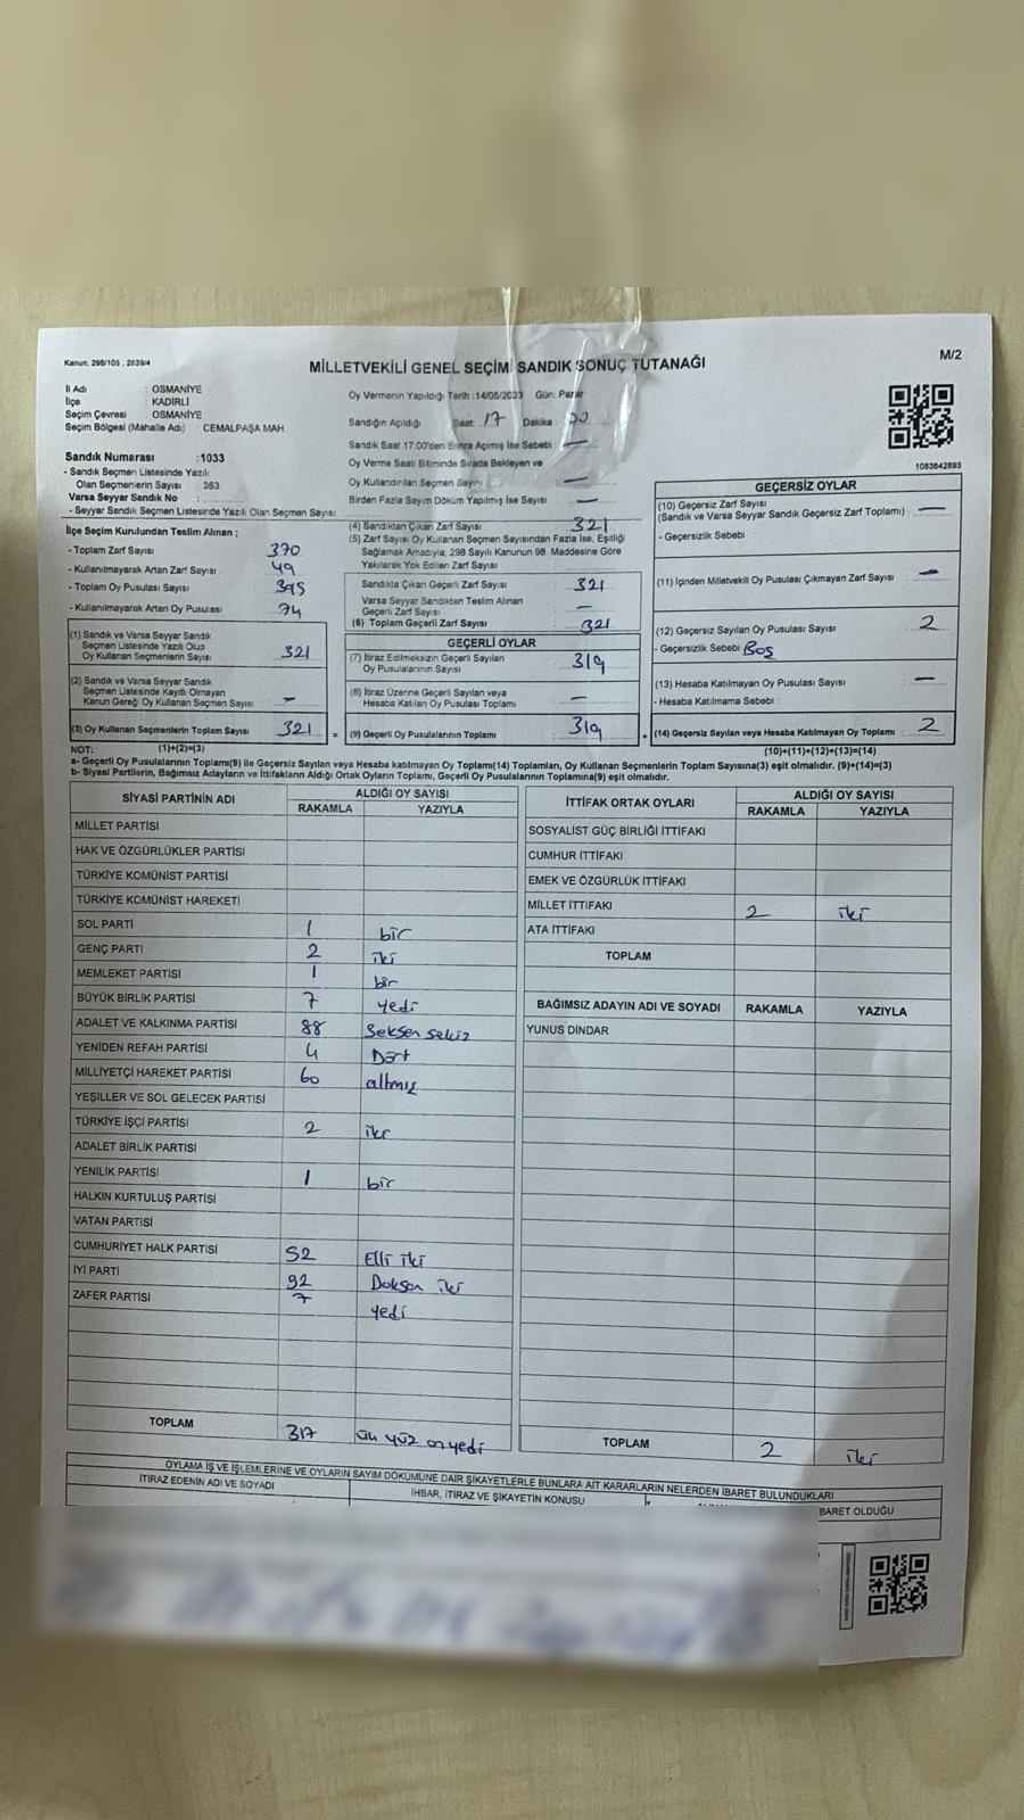 Kanun: 298/105 , 2839/4
M/2
MİLLETVEKİLİ GENEL SEÇİMİ SANDIK SONUÇ TUTANAĞI
İl Adı : OSMANİYE
İlçe : KADİRLİ
Seçim Çevresi : OSMANİYE
Seçim Bölgesi (Mahalle Adı) CEMALPAŞA MAH.
Sandık Numarası :1033
- Sandık Seçmen Listesinde Yazılı
Olan Seçmenlerin Sayısı 363
Varsa Seyyar Sandık No :
- Seyyar Sandık Seçmen Listesinde Yazılı Olan Seçmen Sayısı
İlçe Seçim Kurulundan Teslim Alınan ;
- Toplam Zarf Sayısı 370
- Kullanılmayarak Artan Zarf Sayısı 49
- Toplam Oy Pusulası Sayısı 395
- Kullanılmayarak Artan Oy Pusulası 74
(1) Sandık ve Varsa Seyyar Sandık
Seçmen Listesinde Yazılı Olup
Oy Kullanan Seçmenlerin Sayısı 321
(2) Sandık ve Varsa Seyyar Sandık
Seçmen Listesinde Kayıtlı Olmayan
Kanun Gereği Oy Kullanan Seçmen Sayısı -
(3) Oy Kullanan Seçmenlerin Toplam Sayısı 321
(1)+(2)=(3)
Oy Vermenin Yapıldığı Tarih :14/05/2023 Gün: Pazar
Sandığın Açıldığı Saat 17 Dakika 00
Sandık Saat 17:00'den Sonra Açılmış İse Sebebi —
Oy Verme Saati Bitiminde Sırada Bekleyen ve
Oy Kullandırılan Seçmen Sayısı —
Birden Fazla Sayım Döküm Yapılmış İse Sayısı —
(4) Sandıktan Çıkan Zarf Sayısı 321
(5) Zarf Sayısı Oy Kullanan Seçmen Sayısından Fazla İse, Eşitliği
Sağlamak Amacıyla, 298 Sayılı Kanunun 98. Maddesine Göre
Yakılarak Yok Edilen Zarf Sayısı
Sandıkta Çıkan Geçerli Zarf Sayısı 321
Varsa Seyyar Sandıktan Teslim Alınan
Geçerli Zarf Sayısı —
(6) Toplam Geçerli Zarf Sayısı 321
GEÇERLİ OYLAR
(7) İtiraz Edilmeksizin Geçerli Sayılan
Oy Pusulalarının Sayısı 319
(8) İtiraz Üzerine Geçerli Sayılan veya
Hesaba Katılan Oy Pusulası Toplamı —
(9) Geçerli Oy Pusulalarının Toplamı 319
1083642893
GEÇERSİZ OYLAR
(10) Geçersiz Zarf Sayısı
(Sandık ve Varsa Seyyar Sandık Geçersiz Zarf Toplamı) —
- Geçersizlik Sebebi
(11) İçinden Milletvekili Oy Pusulası Çıkmayan Zarf Sayısı —
(12) Geçersiz Sayılan Oy Pusulası Sayısı 2
- Geçersizlik Sebebi Boş
(13) Hesaba Katılmayan Oy Pusulası Sayısı —
- Hesaba Katılmama Sebebi
(14) Geçersiz Sayılan veya Hesaba Katılmayan Oy Toplamı 2
(10)+(11)+(12)+(13)=(14)
NOT:
a- Geçerli Oy Pusulalarının Toplamı(9) ile Geçersiz Sayılan veya Hesaba katılmayan Oy Toplamı(14) Toplamları, Oy Kullanan Seçmenlerin Toplam Sayısına(3) eşit olmalıdır. (9)+(14)=(3)
b- Siyasi Partilerin, Bağımsız Adayların ve İttifakların Aldığı Ortak Oyların Toplamı, Geçerli Oy Pusulalarının Toplamına(9) eşit olmalıdır.
SİYASİ PARTİNİN ADI ALDIĞI OY SAYISI
RAKAMLA YAZIYLA
MİLLET PARTİSİ
HAK VE ÖZGÜRLÜKLER PARTİSİ
TÜRKİYE KOMÜNİST PARTİSİ
TÜRKİYE KOMÜNİST HAREKETİ
SOL PARTİ 1 bir
GENÇ PARTİ 2 iki
MEMLEKET PARTİSİ 1 bir
BÜYÜK BİRLİK PARTİSİ 7 yedi
ADALET VE KALKINMA PARTİSİ 88 Seksen sekiz
YENİDEN REFAH PARTİSİ 4 Dört
MİLLİYETÇİ HAREKET PARTİSİ 60 altmış
YEŞİLLER VE SOL GELECEK PARTİSİ
TÜRKİYE İŞÇİ PARTİSİ 2 iki
ADALET BİRLİK PARTİSİ
YENİLİK PARTİSİ 1 bir
HALKIN KURTULUŞ PARTİSİ
VATAN PARTİSİ
CUMHURİYET HALK PARTİSİ 52 Elli iki
İYİ PARTİ 92 Doksan iki
ZAFER PARTİSİ 7 yedi
TOPLAM 317 üç yüz onyedi
İTTİFAK ORTAK OYLARI ALDIĞI OY SAYISI
RAKAMLA YAZIYLA
SOSYALİST GÜÇ BİRLİĞİ İTTİFAKI
CUMHUR İTTİFAKI
EMEK VE ÖZGÜRLÜK İTTİFAKI
MİLLET İTTİFAKI 2 iki
ATA İTTİFAKI
TOPLAM
BAĞIMSIZ ADAYIN ADI VE SOYADI RAKAMLA YAZIYLA
YUNUS DİNDAR
TOPLAM 2 iki
OYLAMA İŞ VE İŞLEMLERİNE VE OYLARIN SAYIM DÖKÜMÜNE DAİR ŞİKAYETLERLE BUNLARA AİT KARARLARIN NELERDEN İBARET BULUNDUKLARI
İTİRAZ EDENİN ADI VE SOYADI
İHBAR, İTİRAZ VE ŞİKAYETİN KONUSU
BARET OLDUĞU